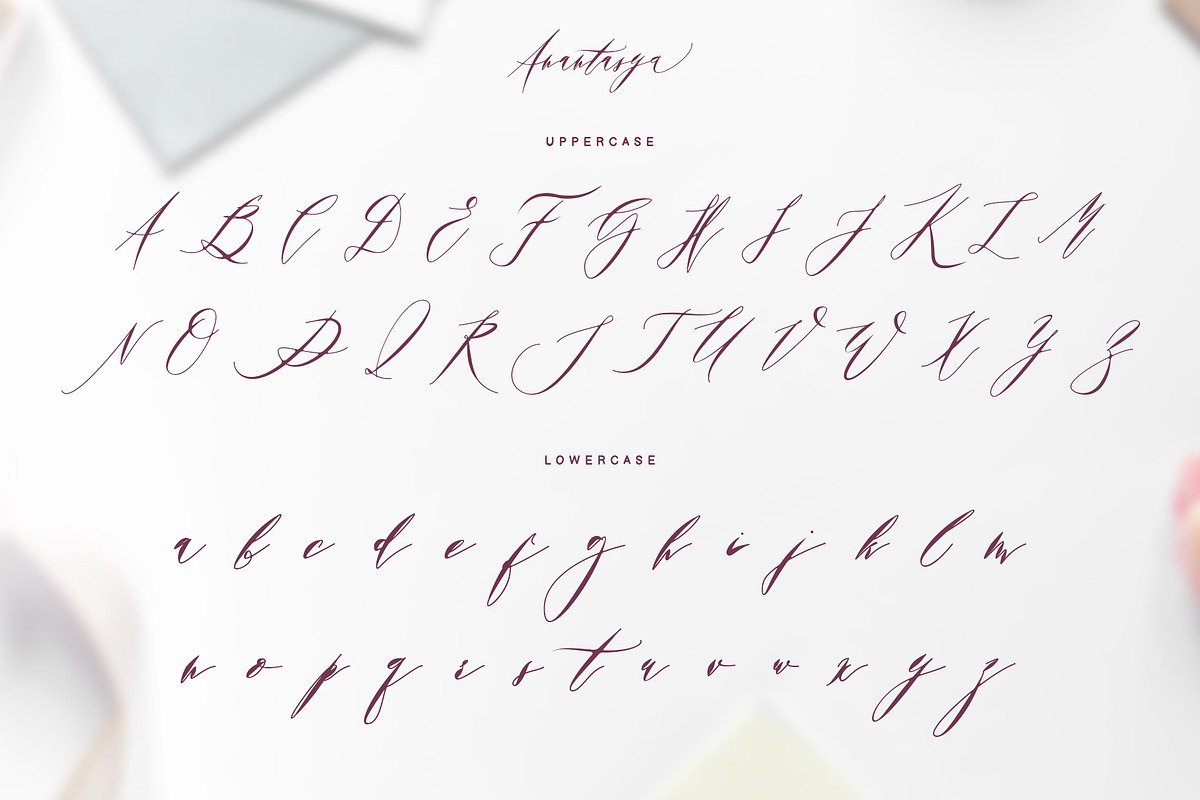 Anantasya
UPPERCASE
A B C D E F G H I J K L M
N O P Q R S T U V W X Y Z
LOWERCASE
a b c d e f g h i j k l m
n o p q r s t u v w x y z